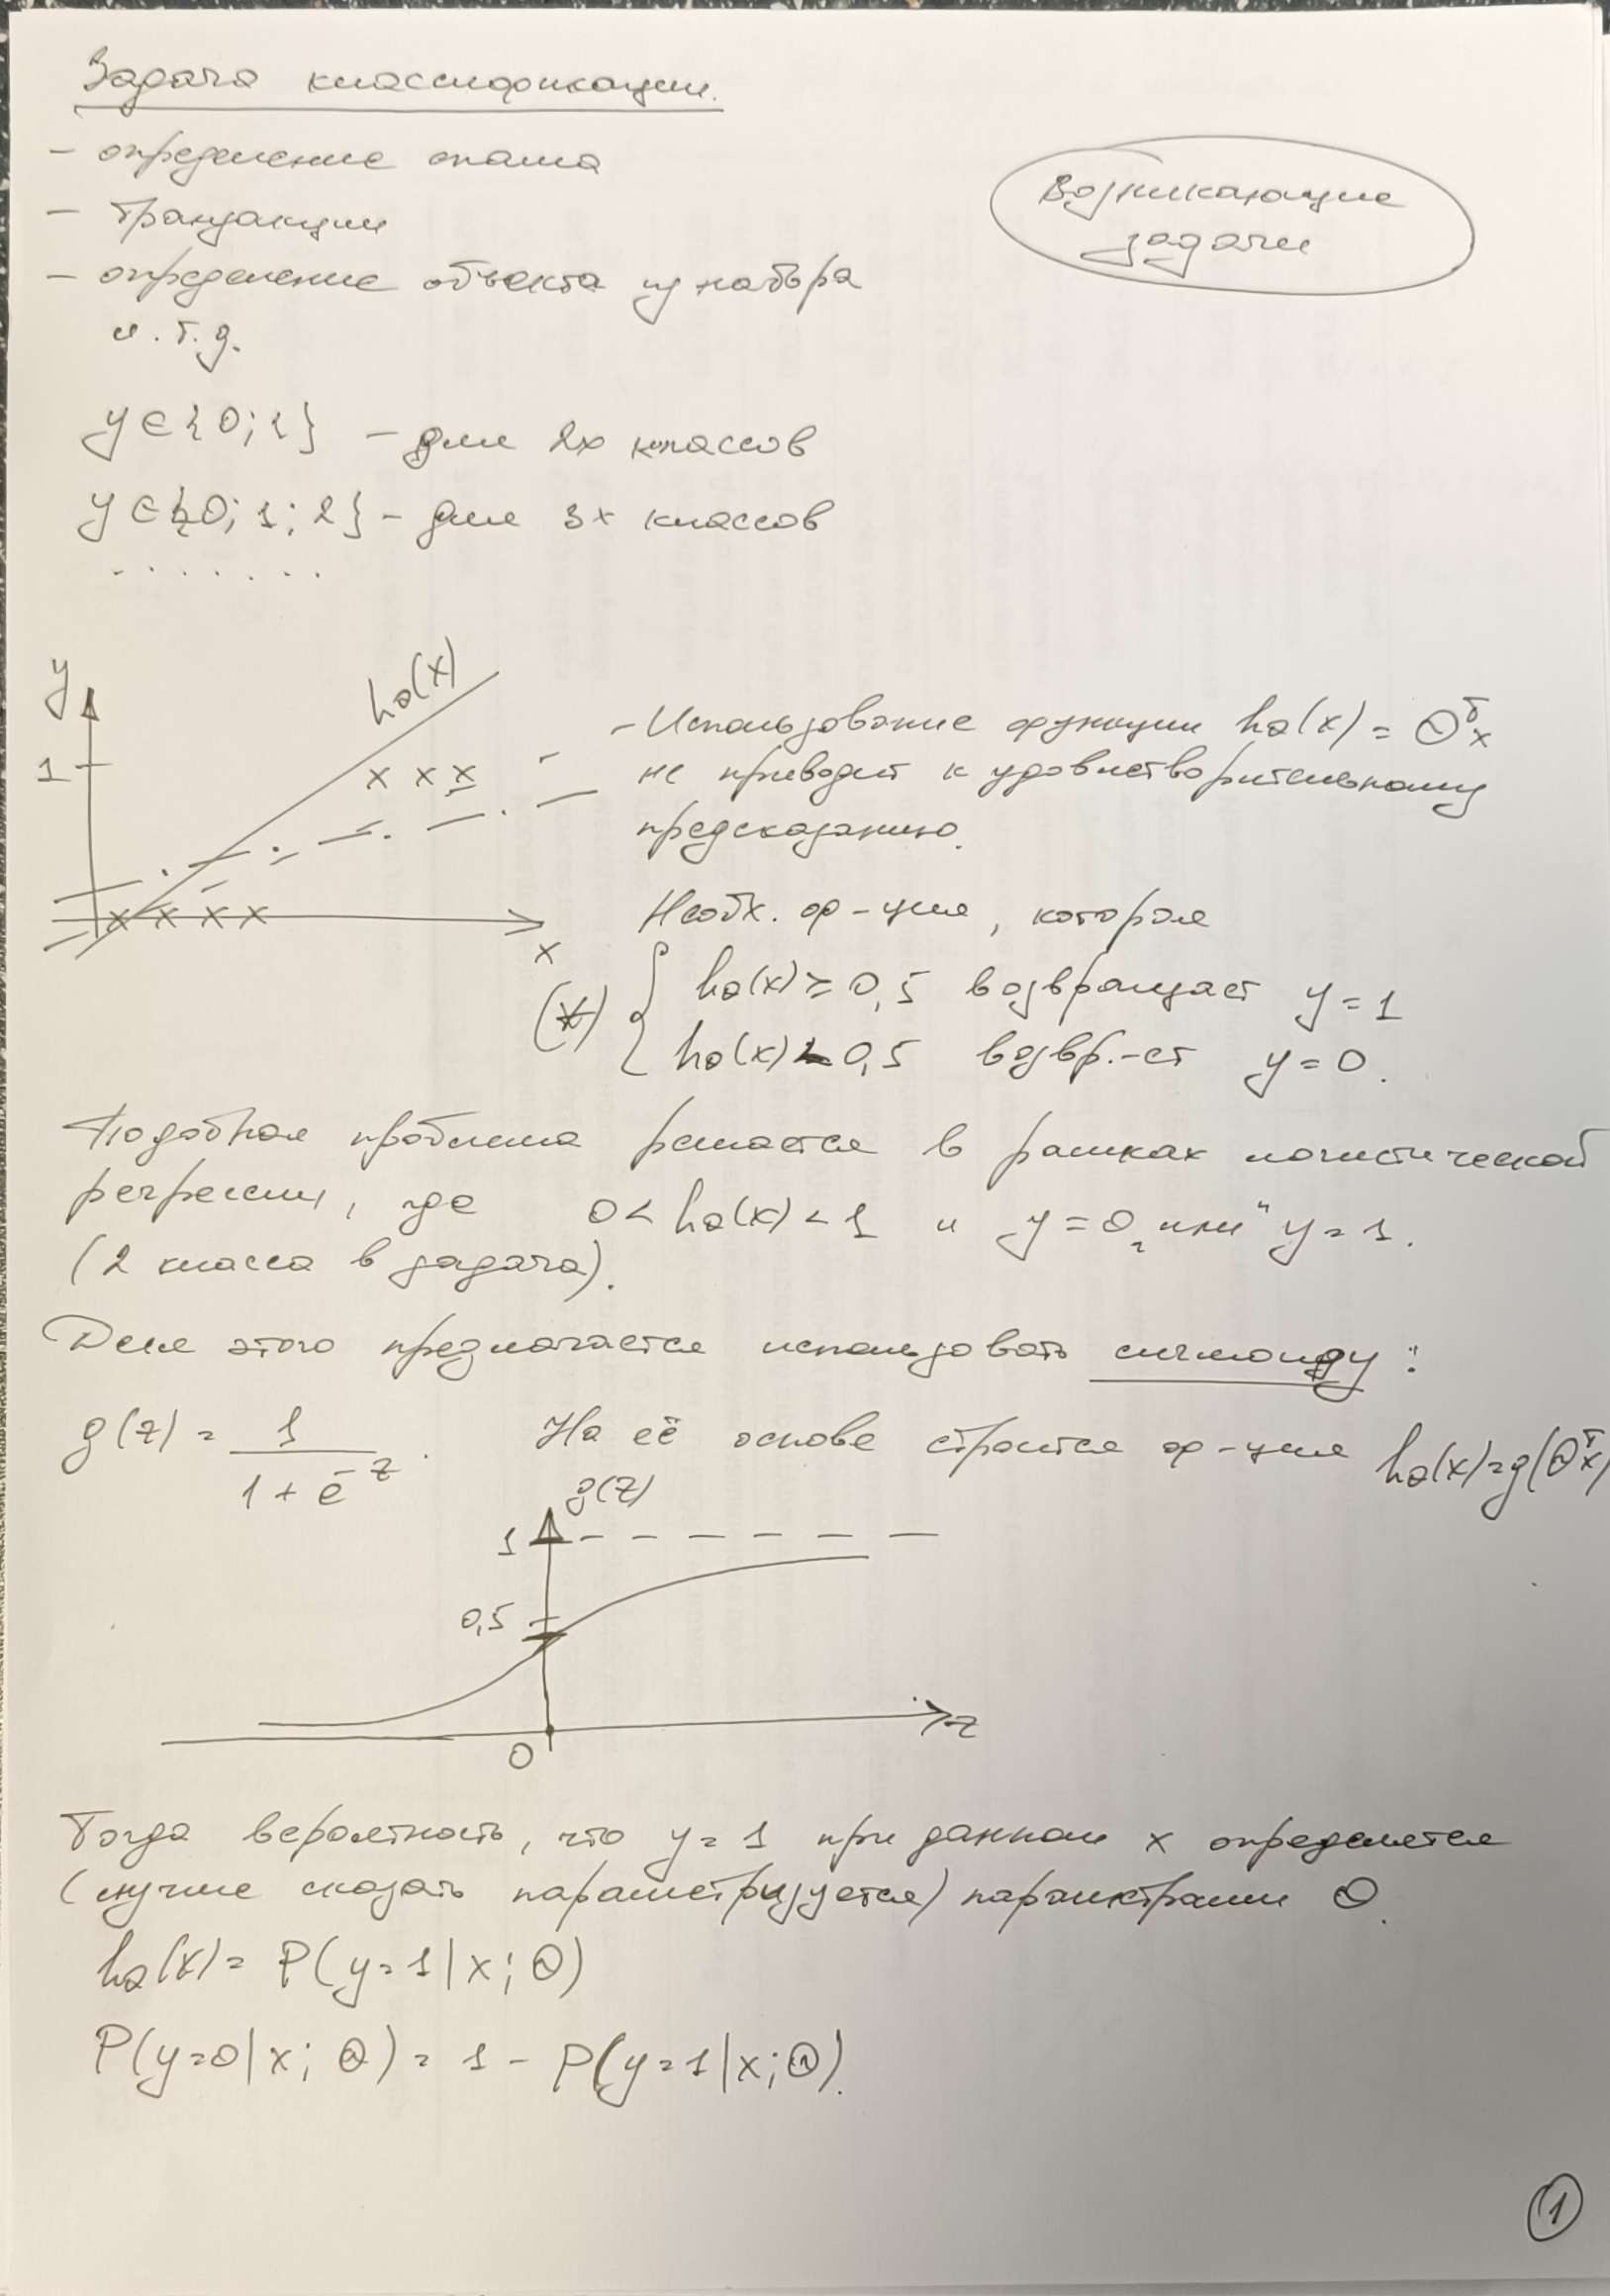 Задача классификации.
- определение спама
- транзакции
- определение объекта из набора
и.т.д.
Возникающие
задачи
y ∈ {0; 1} - для 2х классов
y ∈ {0; 1; 2} - для 3х классов
. . . . . . .
y
hθ(x)
1
x x x
x x x x
x
- Использование функции hθ(x) = Θᵀx
не приводит к удовлетворительному
предсказанию.
Необх. ф-ция, которая
(*) { hθ(x) ≥ 0,5 возвращает y = 1
hθ(x) < 0,5 возвр.-ет y = 0.
Подобная проблема решается в рамках логистической
регрессии, где 0 < hθ(x) < 1 и y = 0 „или“ y = 1.
(2 класса в задача).
Для этого предлагается использовать сигмоиду:
g(z) = 1 / (1 + e⁻ᶻ). На её основе строится ф-ция hθ(x) = g(Θᵀx)
g(z)
1
0,5
0
z
Тогда вероятность, что y = 1 при данном x определяется
(лучше сказать параметризуется) параметрами Θ.
hθ(x) = P(y = 1 | x; Θ)
P(y = 0 | x; Θ) = 1 - P(y = 1 | x; Θ).
1